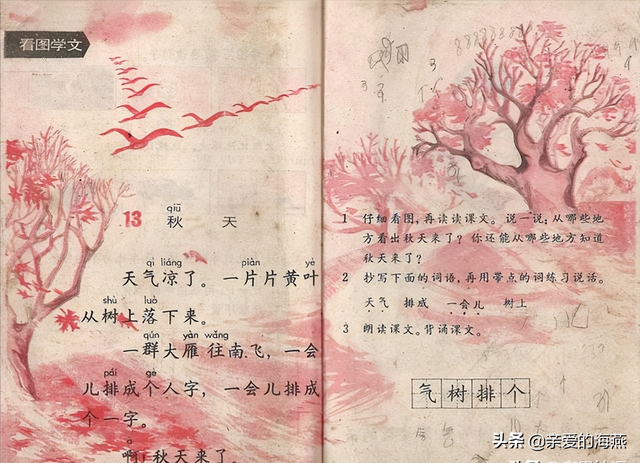 看图学文
13 秋 天
qiū
qì liáng piàn yè
天气凉了。一片片黄叶
shù luò
从树上落下来。
qún yàn wǎng
一群大雁往南飞，一会
pái gè
儿排成个人字，一会儿排成
个一字。
啊！秋天来了。
1 仔细看图，再读读课文。说一说：从哪些地
方看出秋天来了？你还能从哪些地方知道
秋天来了？
2 抄写下面的词语，再用带点的词练习说话。
天气 排成 一会儿 树上
3 朗读课文。背诵课文。
气树排个
头条 @亲爱的海燕